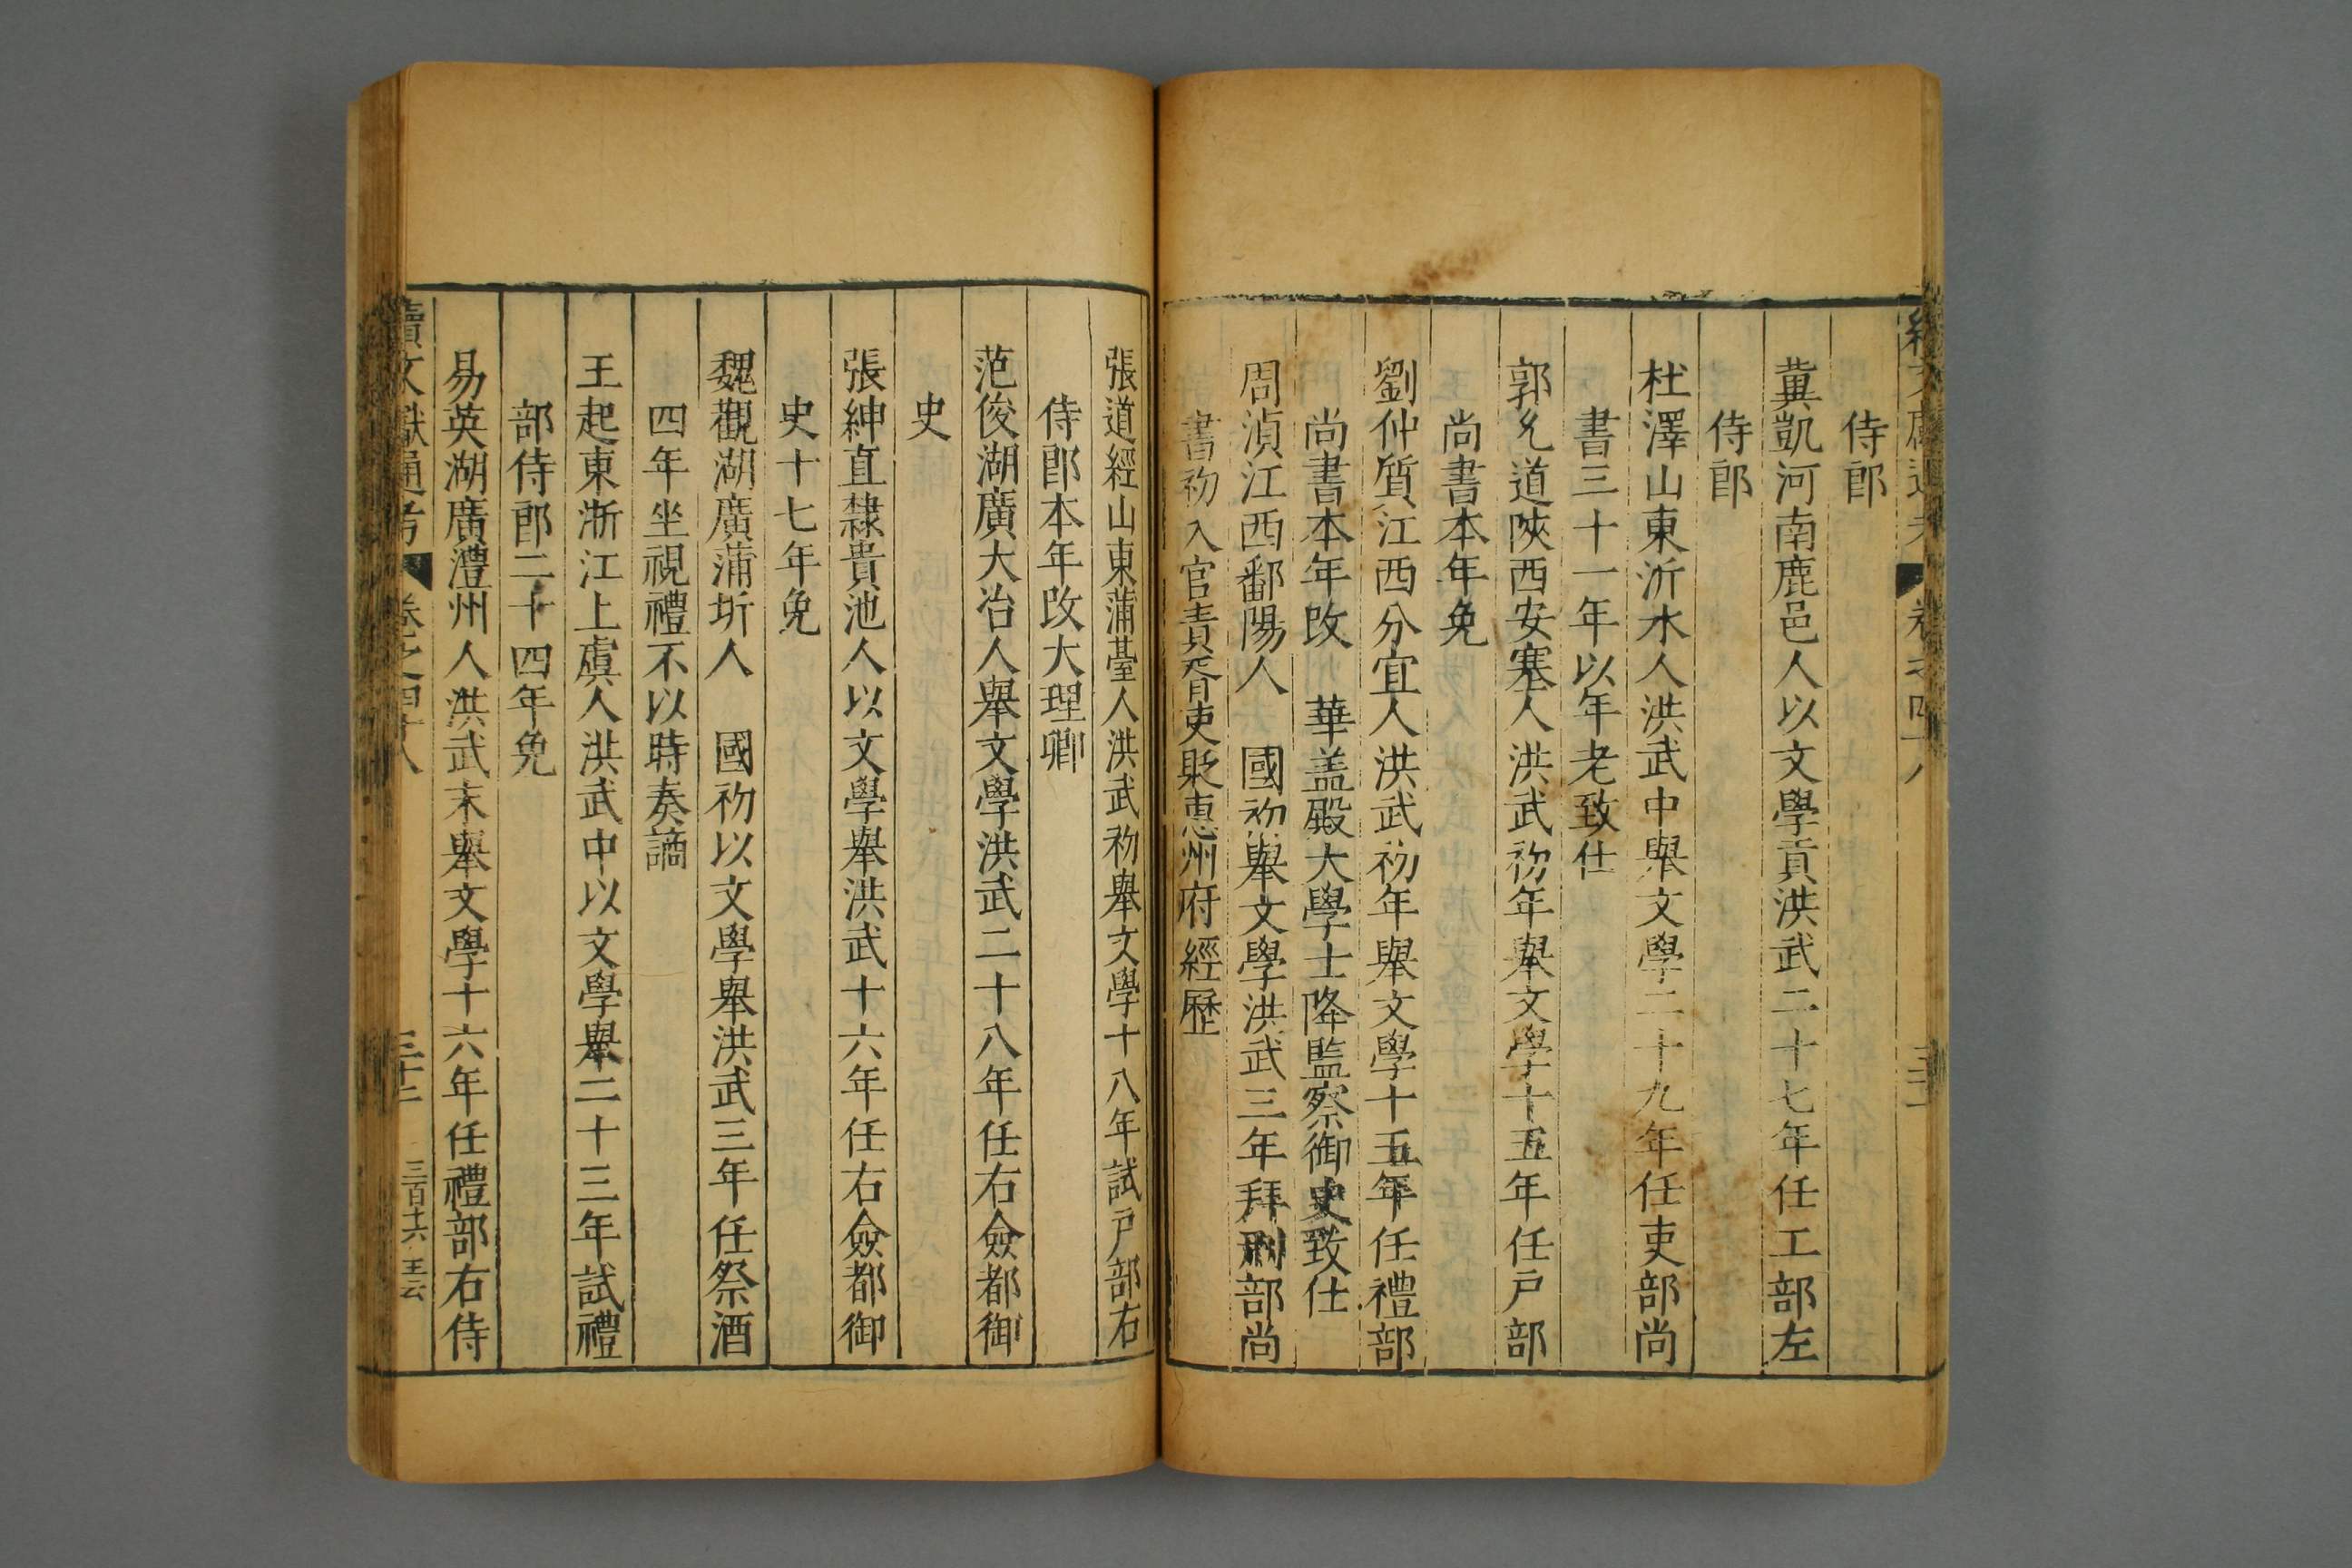 侍郎
冀凱河南鹿邑人以文學貢洪武二十七年任工部左
侍郎
杜澤山東沂水人洪武中舉文學二十九年任吏部尚
書三十一年以年老致仕
郭允道陝西安塞人洪武初年舉文學十五年任戸部
尚書本年免
劉仲質江西分宜人洪武初年舉文學十五年任禮部
尚書本年改　華盖殿大學士降監察御史致仕
周湞江西鄱陽人　國初舉文學洪武三年拜刑部尚
書初入官責胥吏貶惠州府經歷
張道經山東蒲臺人洪武初舉文學十八年試戸部右
侍郎本年改大理卿
范俊湖廣大冶人舉文學洪武二十八年任右僉都御
史
張紳直隸貴池人以文學舉洪武十六年任右僉都御
史十七年免
魏觀湖廣蒲圻人　國初以文學舉洪武三年任祭酒
四年坐視禮不以時奏謫
王起東浙江上虞人洪武中以文學舉二十三年試禮
部侍郎二十四年免
易英湖廣澧州人洪武末舉文學十六年任禮部右侍
續文獻通考　卷之四十八　三十二　三百十六　王云